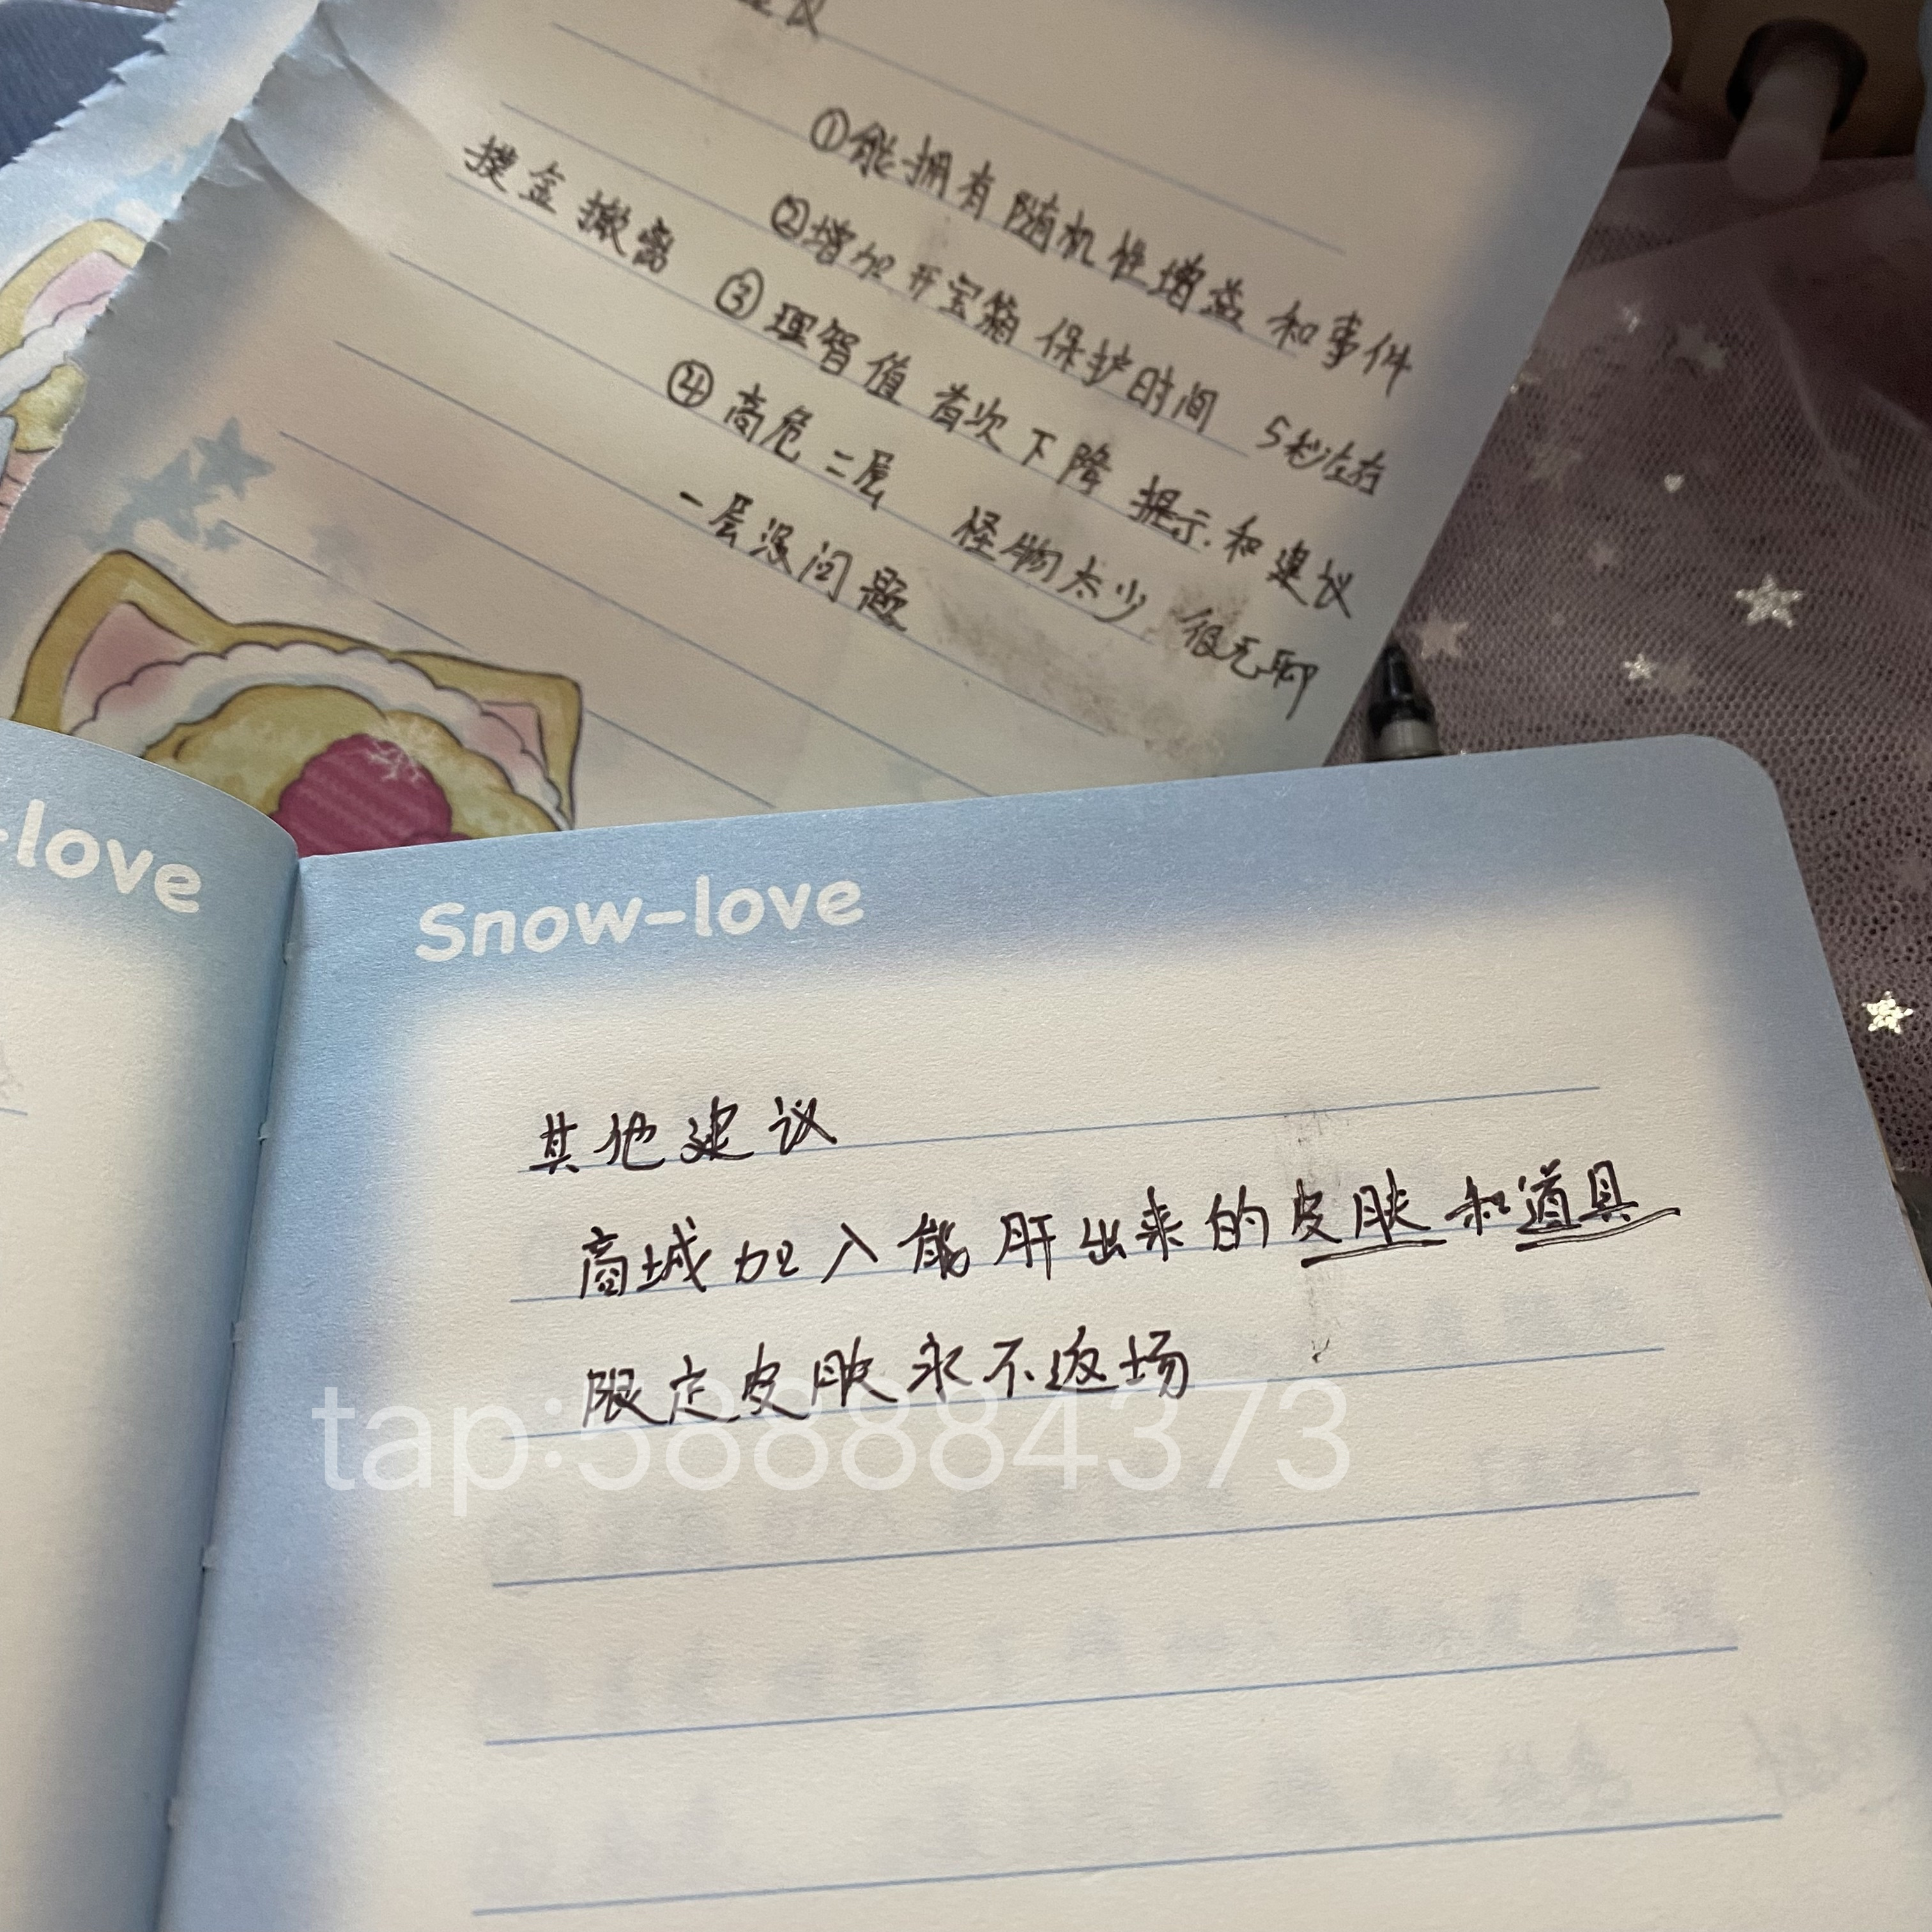 议
①能拥有随机性增益和事件
摸金撤离 ②增加开宝箱保护时间 5秒左右
③理智值首次下降提示.和建议
④高危二层 怪物太少 很无聊
一层没问题
-love
Snow-love
其他建议
商城加入能肝出来的皮肤和道具
限定皮肤永不返场
tap:588884373